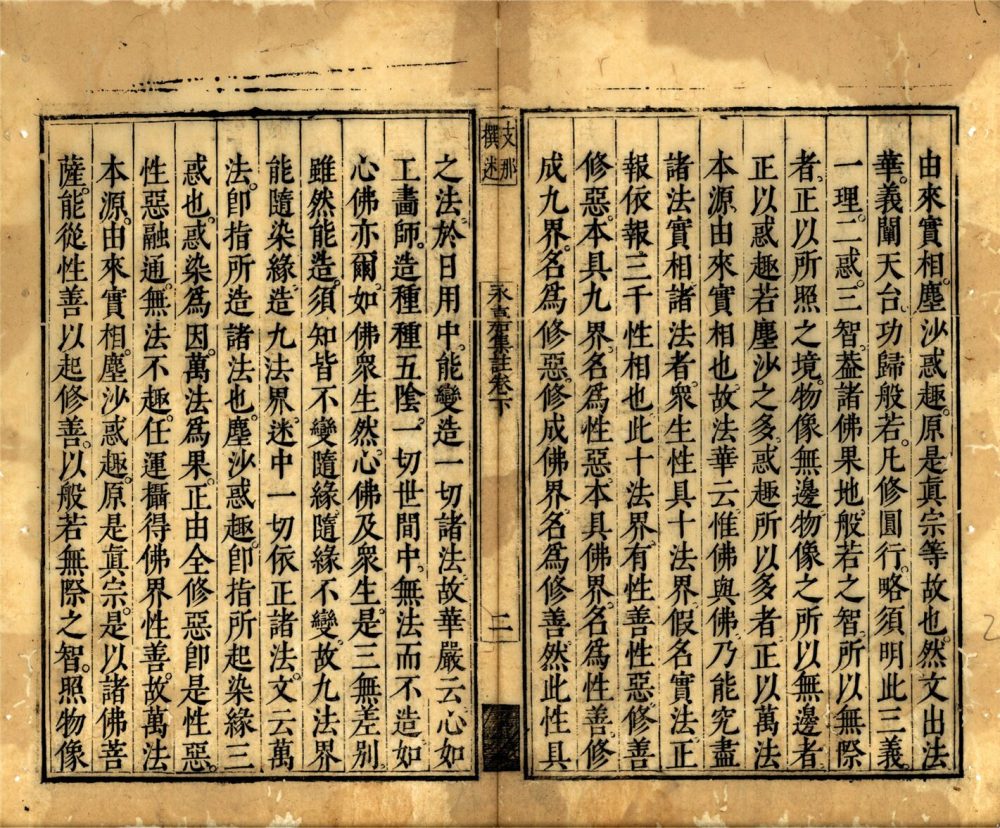 由來實相。塵沙惑趣。原是眞宗等故也。然文出法
華。義闡天台。功歸般若。凡修圓行。略須明此三義。
一理。二惑。三智。葢諸佛果地般若之智。所以無際
者。正以所照之境。物像無邊。物像之所以無邊者。
正以惑趣若塵沙之多。惑趣所以多者。正以萬法
本源。由來實相也。故法華云。惟佛與佛。乃能究盡
諸法實相。諸法者。衆生性具十法界。假名實法。正
報依報。三千性相也。此十法界。有性善性惡。修善
修惡。本具九界。名爲性惡。本具佛界。名爲性善。修
成九界。名爲修惡。修成佛界。名爲修善。然此性具
支那
撰述
永嘉集註卷下
二
之法。於日用中。能變造一切諸法。故華嚴云。心如
工畵師。造種種五陰。一切世間中。無法而不造。如
心佛亦爾。如佛衆生然。心佛及衆生。是三無差別。
雖然能造。須知皆不變隨緣。隨緣不變。故九法界
能隨染緣。造九法界。迷中一切依正諸法。文云萬
法。卽指所造諸法也。塵沙惑趣。卽指所起染緣三
惑也。惑染爲因。萬法爲果。正由全修惡卽是性惡。
性惡融通。無法不趣。任運攝得佛界性善。故萬法
本源。由來實相。塵沙惑趣。原是眞宗。是以諸佛菩
薩。能從性善以起修善。以般若無際之智。照物像